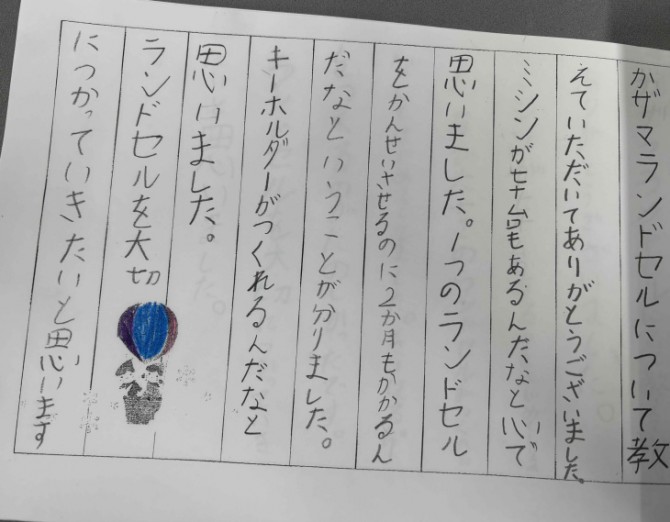 カザマランドセルについて教
えていただいてありがとうございました。
ミシンが七十台もあるんだなと心で
思いました。1つのランドセル
をかんせいさせるのに2か月もかかるん
だなということが分りました。
キーホルダーがつくれるんだなと
思いました。
ランドセルを大切
につかっていきたいと思います